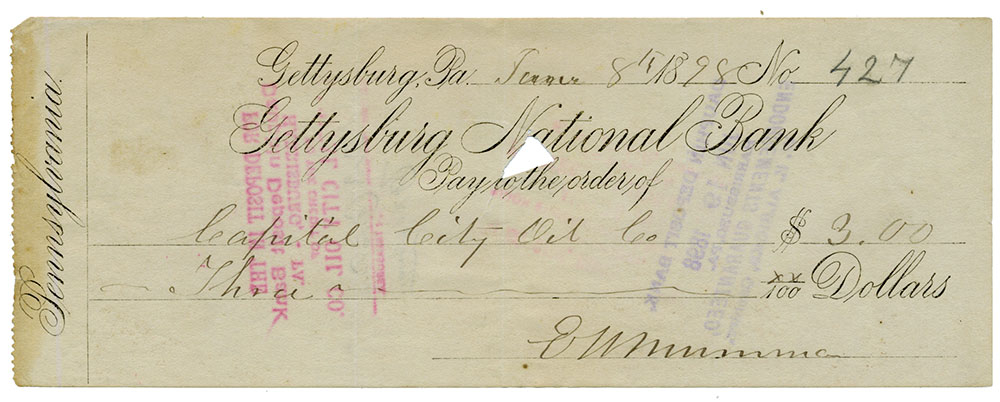 Gettysburg, Pa. 8th 1898 No 427
Gettysburg National Bank
Pay to the order of
Capital City Oil Co $ 3.00
Three xx/100 Dollars
E W Mumma
Pennsylvania.
CITY OIL CO.
HARRISBURG, PA.
Deposit Bank
FOR DEPOSIT IN THE
1898
DEPOSIT BANK.